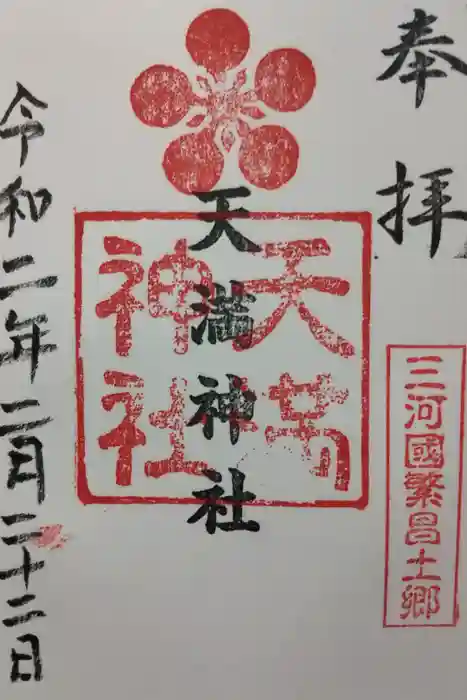 奉拝
三河國繁昌土郷
天満神社
天満神社
令和二年二月二十二日